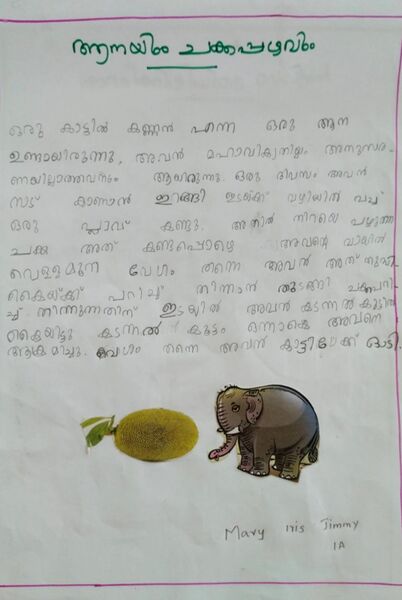 ആനയും ചക്കപ്പഴവും
ഒരു കാട്ടിൽ കണ്ണൻ എന്ന ഒരു ആന
ഉണ്ടായിരുന്നു. അവൻ മഹാവികൃതിയും അനുസര-
ണയില്ലാത്തവനും ആയിരുന്നു. ഒരു ദിവസം അവൻ
നാട് കാണാൻ ഇറങ്ങി ഇടയ്ക്ക് വഴിയിൽ വച്ച്
ഒരു പ്ലാവ് കണ്ടു. അതിൽ നിറയെ പഴുത്ത
ചക്ക അത് കണ്ടപ്പൊഴെ അവന്റെ വായിൽ
വെള്ളമൂറി വേഗം തന്നെ അവൻ അത്
പറിച്ച് തിന്നാൻ തുടങ്ങി
തിന്നുന്നതിന് ഇടയിൽ അവൻ കടന്നൽ കൂട്ടിൽ
കൈയിട്ടു കടന്നൽ കൂട്ടം ഒന്നാകെ അവനെ
ആക്രമിച്ചു. വേഗം തന്നെ അവൻ കാട്ടിലേക്ക് ഓടി.
Mary Iris Jimmy
1A